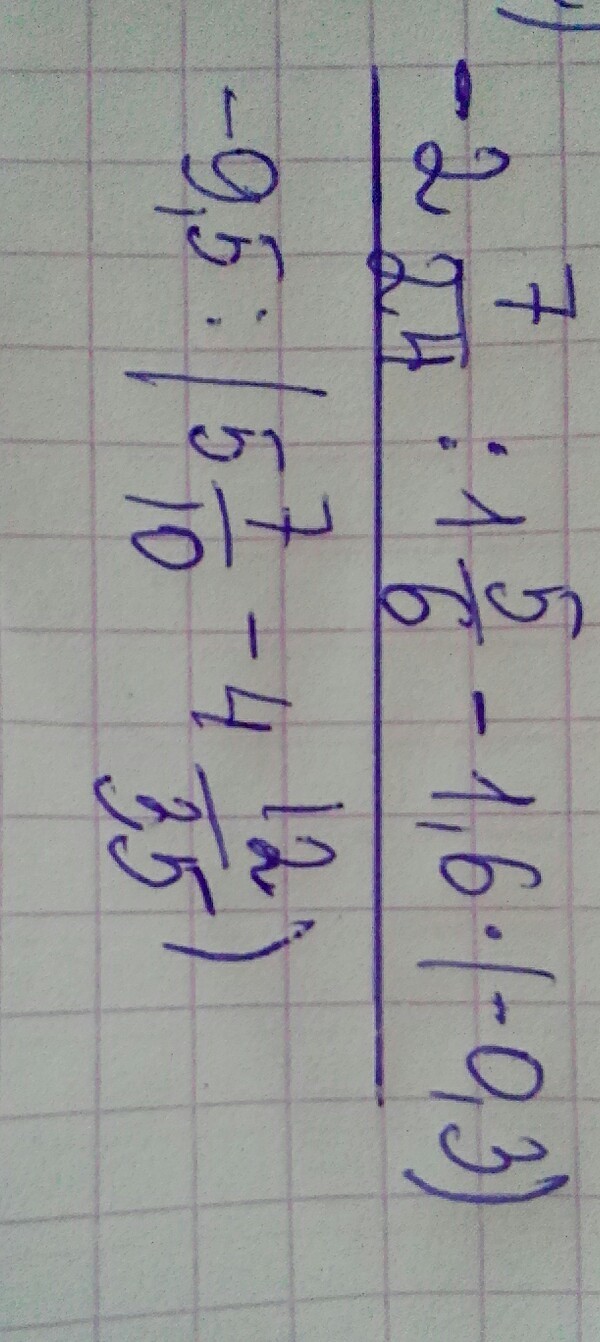 -2 7/24 : 1 5/6 - 1,6 · (-0,3)
-9,5 : (5 7/10 - 4 12/35)